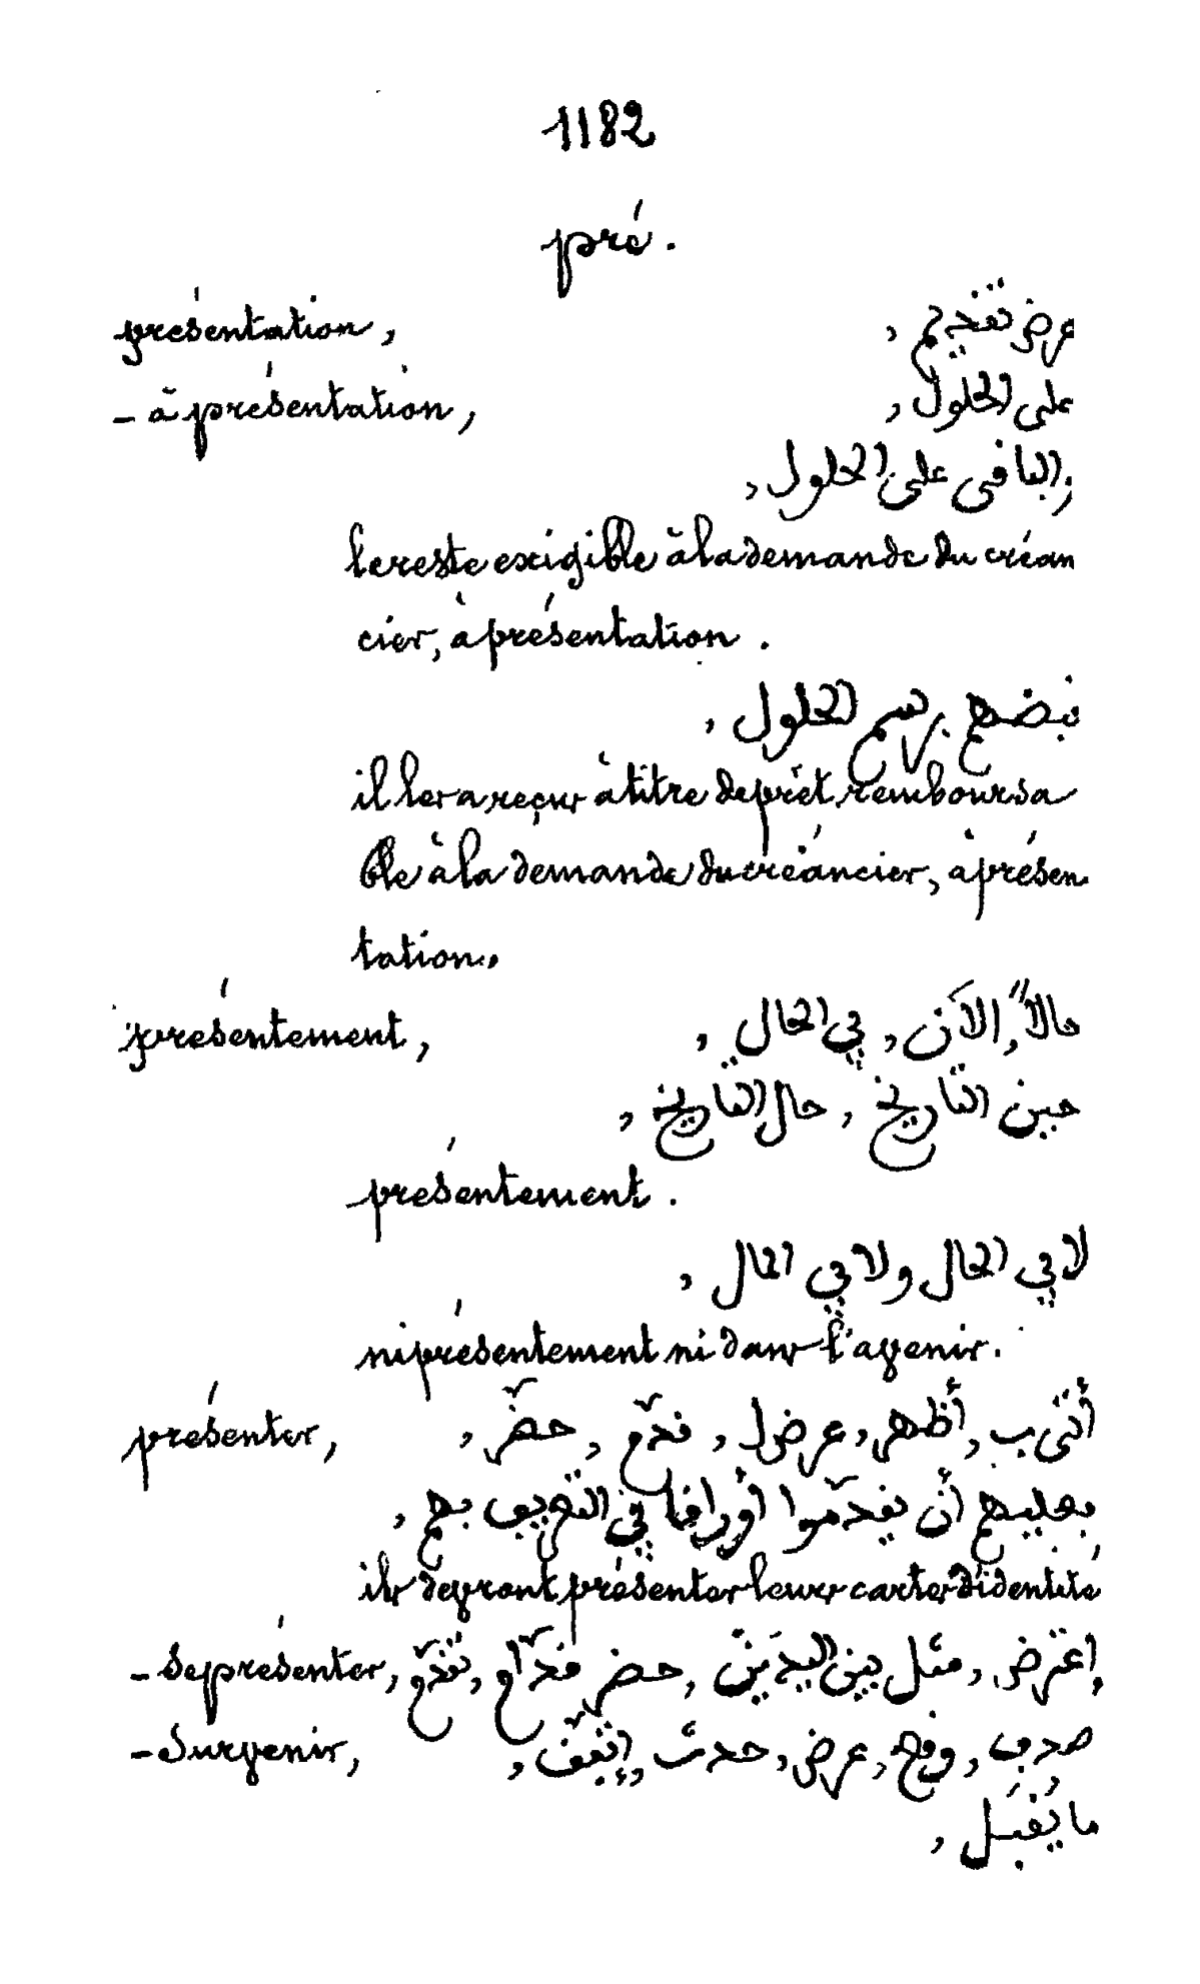 1182
pré.
présentation, عرض تقديم,
- à présentation, على الحلول,
والباقي على الحلول,
le reste exigible à la demande du créan
cier, à présentation.
قبضهم برسم الحلول,
il les a reçus à titre de prêt, remboursa
ble à la demande du créancier, à présen
tation.
présentement, حالاً, الآن, في الحال,
حين التاريخ, حال التاريخ,
présentement.
لا في الحال ولا في المال,
ni présentement ni dans l'avenir.
présenter, أتى ب, أظهر, عرض ل, قدّم, حضّر,
بعليهم أن يقدّموا أوراقا في التعريف بهم,
ils devront présenter leurs cartes d'identité
- se présenter, اعترض, مثل بين اليدين, حضر قدّام, تقدّم,
- Survenir, صدف, وقع, عرض, حدث, إتّفق,
ما يقبل,